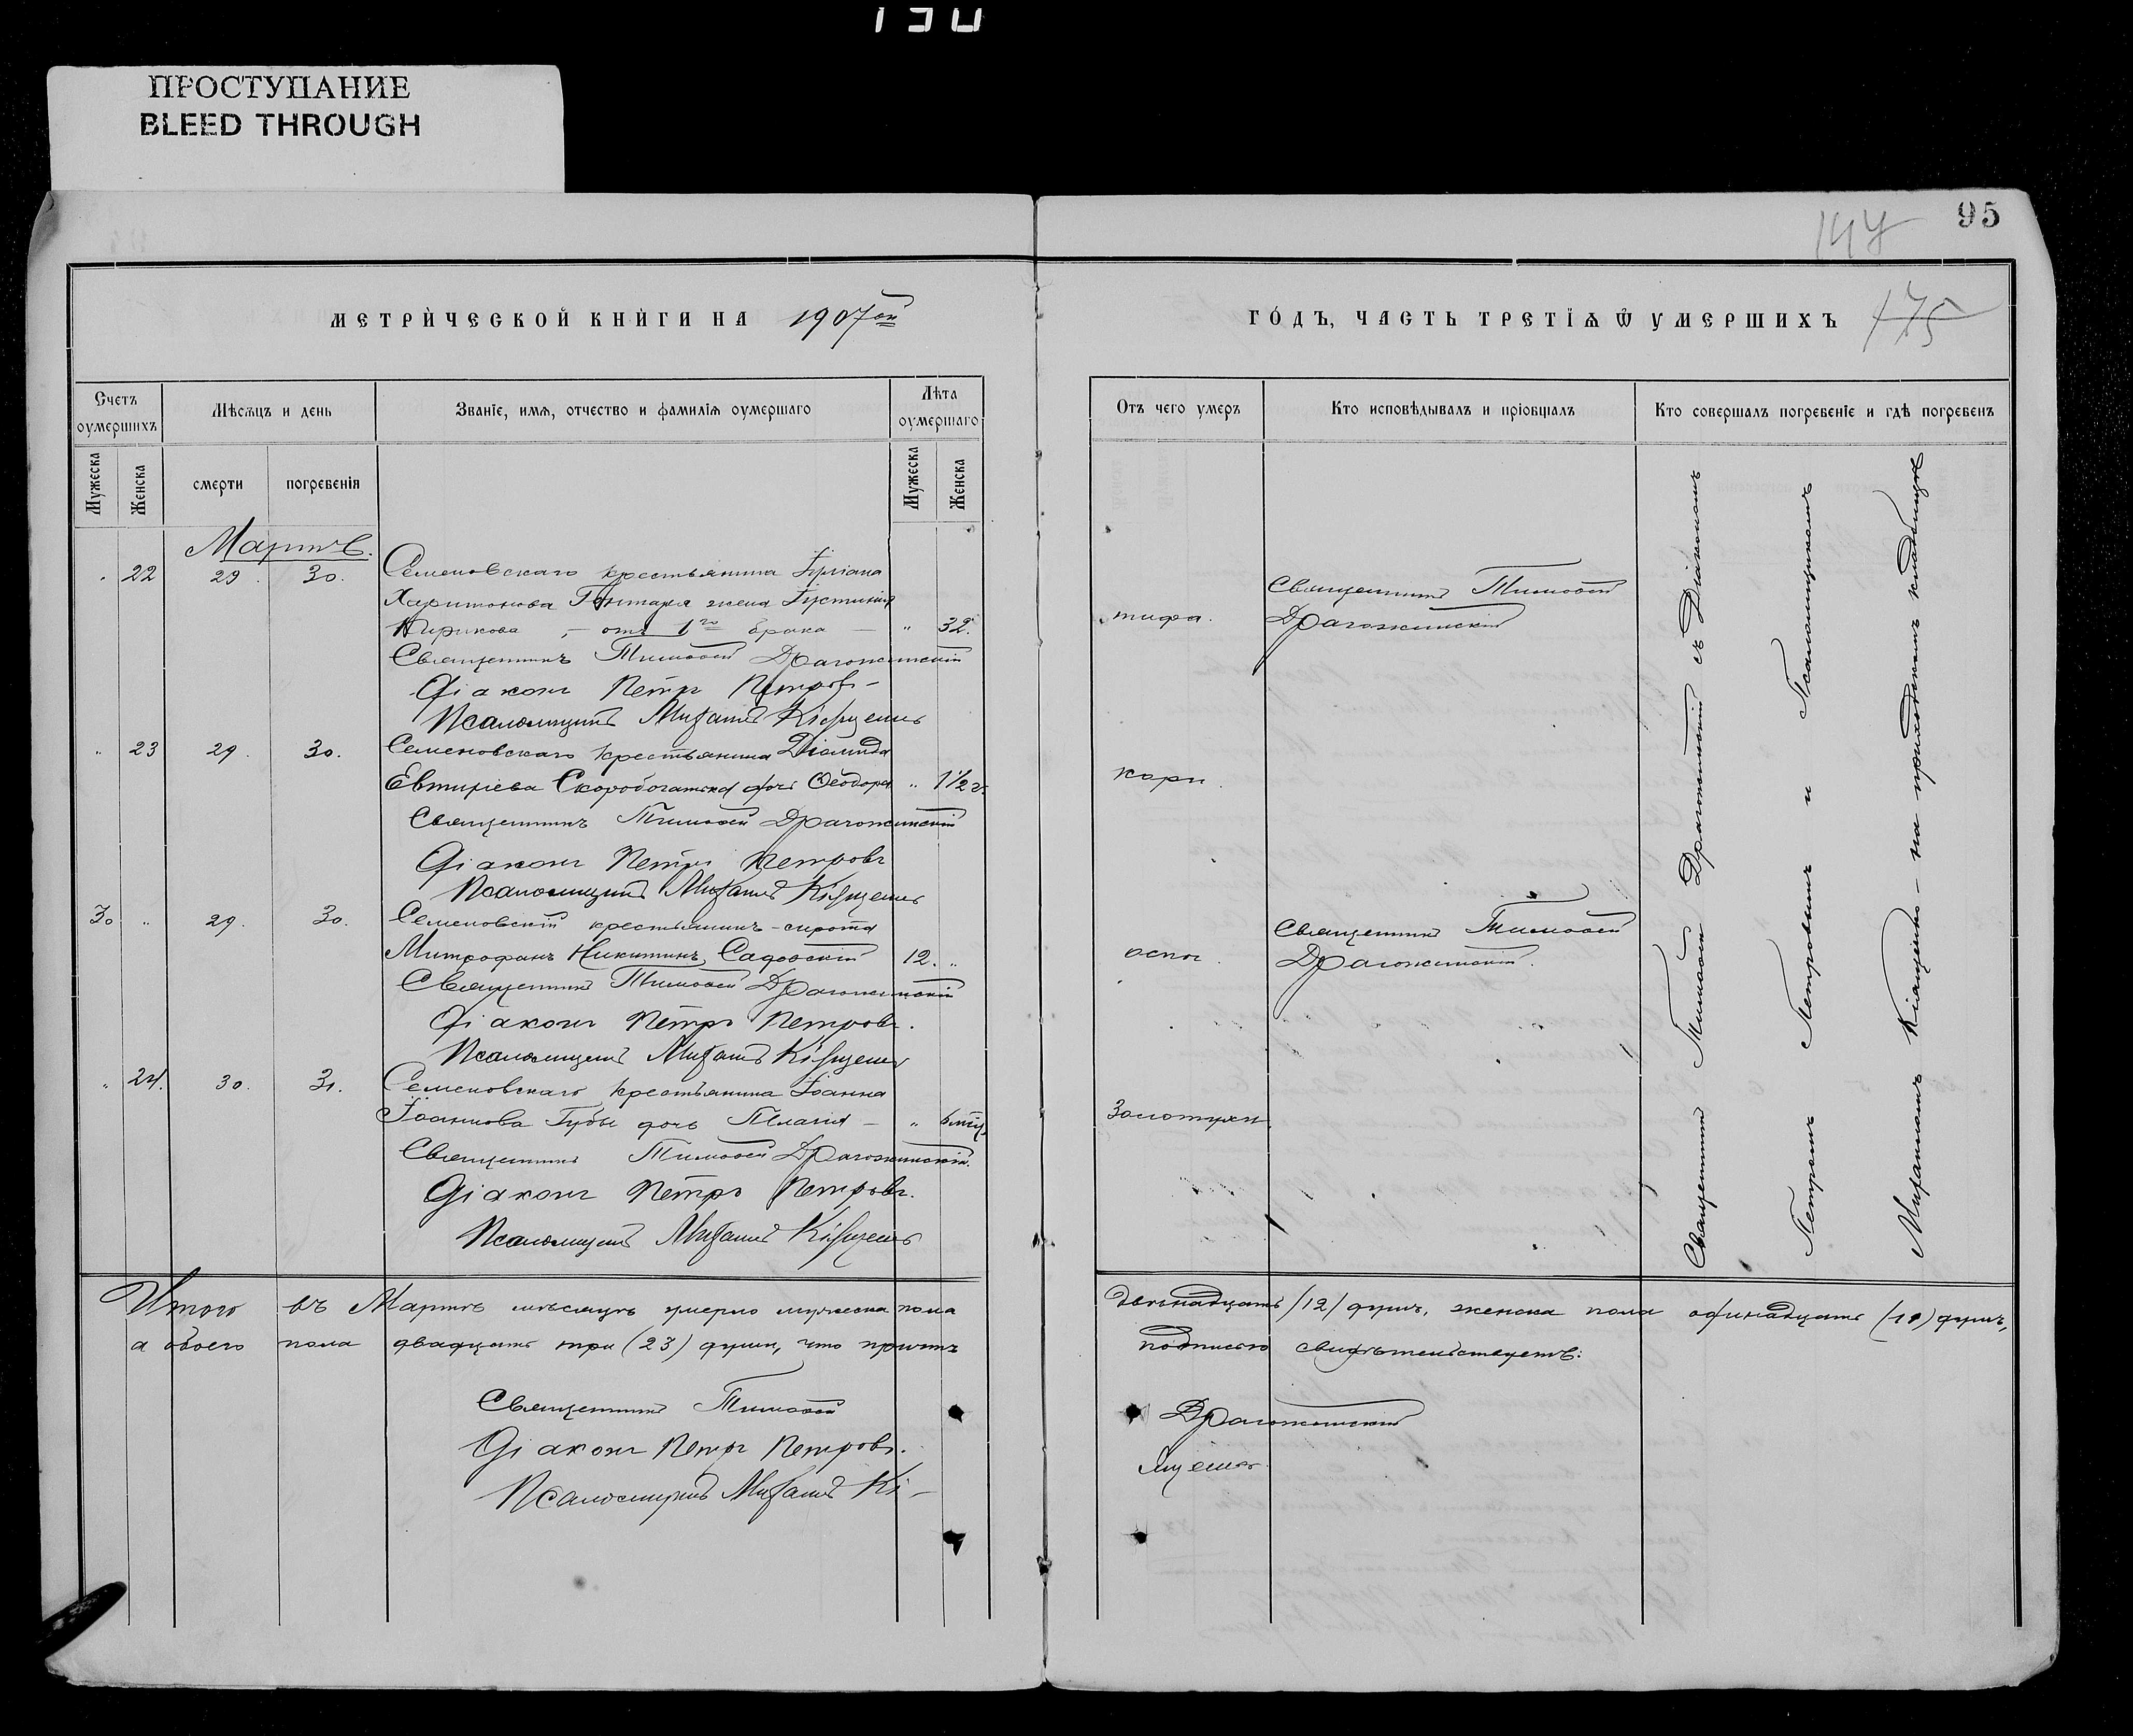 ПРОСТУПАНИЕ
BLEED THROUGH
95
147
МЕТРИЧЕСКОЙ КНИГИ НА 1907ой
ГОДЪ, ЧАСТЬ ТРЕТІѦ Ѿ УМЕРШИХЪ 175
Счетъ оумершихъ
Мѣсѧцъ и день
Званіе, имѧ, отчество и фамиліѧ оумершаго
Лѣта оумершаго
Отъ чего умеръ
Кто исповѣдывалъ и пріобщалъ
Кто совершалъ погребеніе и гдѣ погребенъ
Мужеска
Женска
смерти
погребенія
Мужеска
Женска
Мартъ.
22 29. 30. Семеновскаго крестьянина
Харитонова жена Іустинія
Кирикова, – отъ 1го брака – " 32.
тифа.
Священникъ Тимоѳей
Драгожинскій
Священникъ Тимоѳей Драгожинскій
Діаконъ Петръ Петровъ
Псаломщикъ Михаилъ
" 23 29. 30. Семеновскаго крестьянина Діомида
Евтихіева Скоробогатька дочь Ѳеодора " 1 1/2 г.
кори.
Священникъ Тимоѳей Драгожинскій
Діаконъ Петръ Петровъ
Псаломщикъ Михаилъ
30 " 29. 30. Семеновскій крестьянинъ-сирота
Митрофанъ Никитинъ Садовскій 12. "
оспы.
Священникъ Тимоѳей
Драгожинскій.
Священникъ Тимоѳей Драгожинскій
Діаконъ Петръ Петровъ.
Псаломщикъ Михаилъ
" 24. 30. 31. Семеновскаго крестьянина Іоанна
Іоаннова Губы дочь Пелагія – " 6 мѣц.
Золотухи.
Священникъ Тимоѳей Драгожинскій.
Діаконъ Петръ Петровъ.
Псаломщикъ Михаилъ
Священникъ Тимоѳей Драгожинскій съ Діакономъ
Петромъ Петровымъ и Псаломщикомъ
Михаиломъ – на приходскомъ кладбищѣ
Итого въ Мартѣ мѣсяцѣ умерло мужеска пола двѣнадцать /12/ душъ, женска пола одинадцать (11) душъ,
а обоего пола двадцать три (23) души, что причтъ подписью свидѣтельствуетъ:
Священникъ Тимоѳей Драгожинскій
Діаконъ Петръ Петровъ.
Псаломщикъ Михаилъ